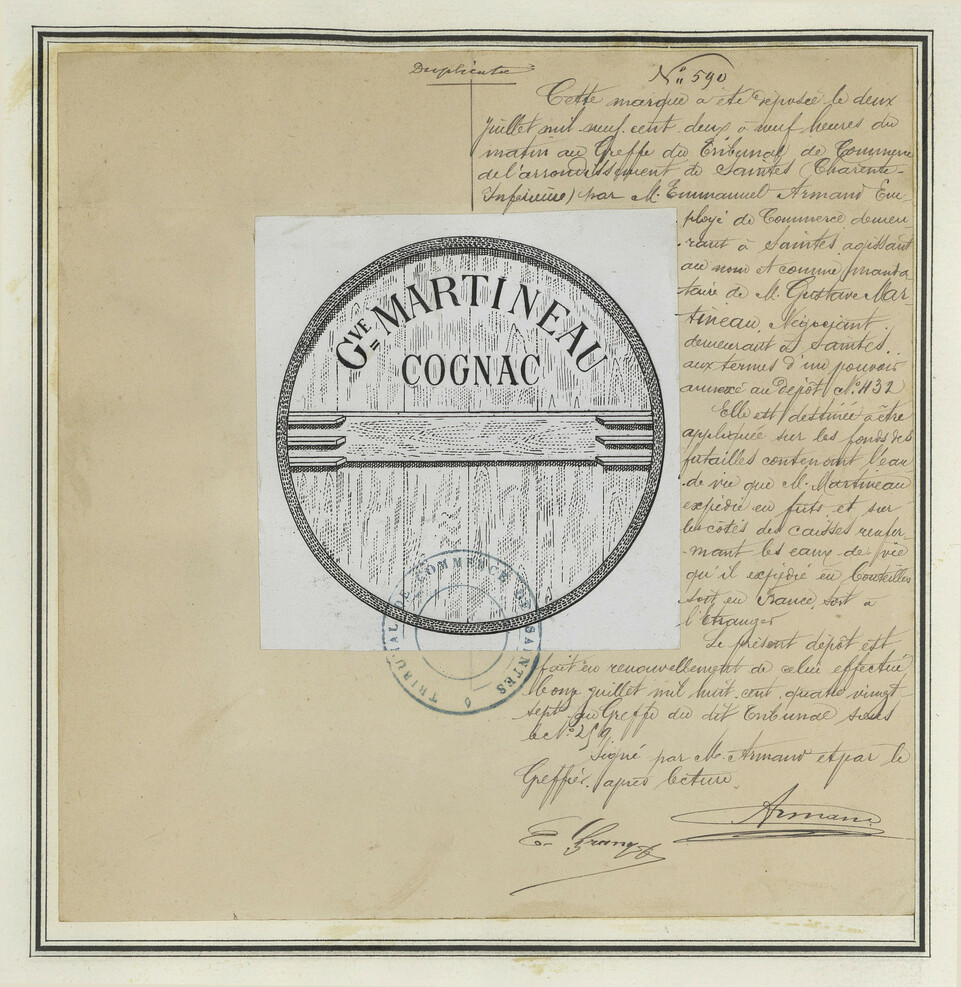 Duplicata
N° 590
Cette marque a été déposée le deux
juillet mil neuf cent deux à neuf heures du
matin au Greffe du Tribunal de Commerce
de l'arrondissement de Saintes (Charente-
Inférieure) par M. Emmanuel Armand Em-
ployé de Commerce demeu
rant à Saintes agissant
au nom et comme manda
taire de M. Gustave Mar-
tineau, Négociant
demeurant à Saintes,
aux termes d'un pouvoir
annexé au dépôt N° 432
Elle est destinée à être
appliquée sur les fonds des
futailles contenant l'eau
de vie que M. Martineau
expédie en fûts et sur
les côtés des caisses renfer-
mant les eaux-de-vie
qu'il expédie en bouteilles
soit en France soit à
l'étranger
Le présent dépôt est
fait en renouvellement de celui effectué
le onze juillet mil huit cent quatre vingt
sept au Greffe du dit Tribunal sous
le N° 259.
Signé par M. Armand et par le
Greffier, après lecture.
Armand
E.
Gve MARTINEAU
COGNAC
TRIBUNAL DE COMMERCE DE SAINTES